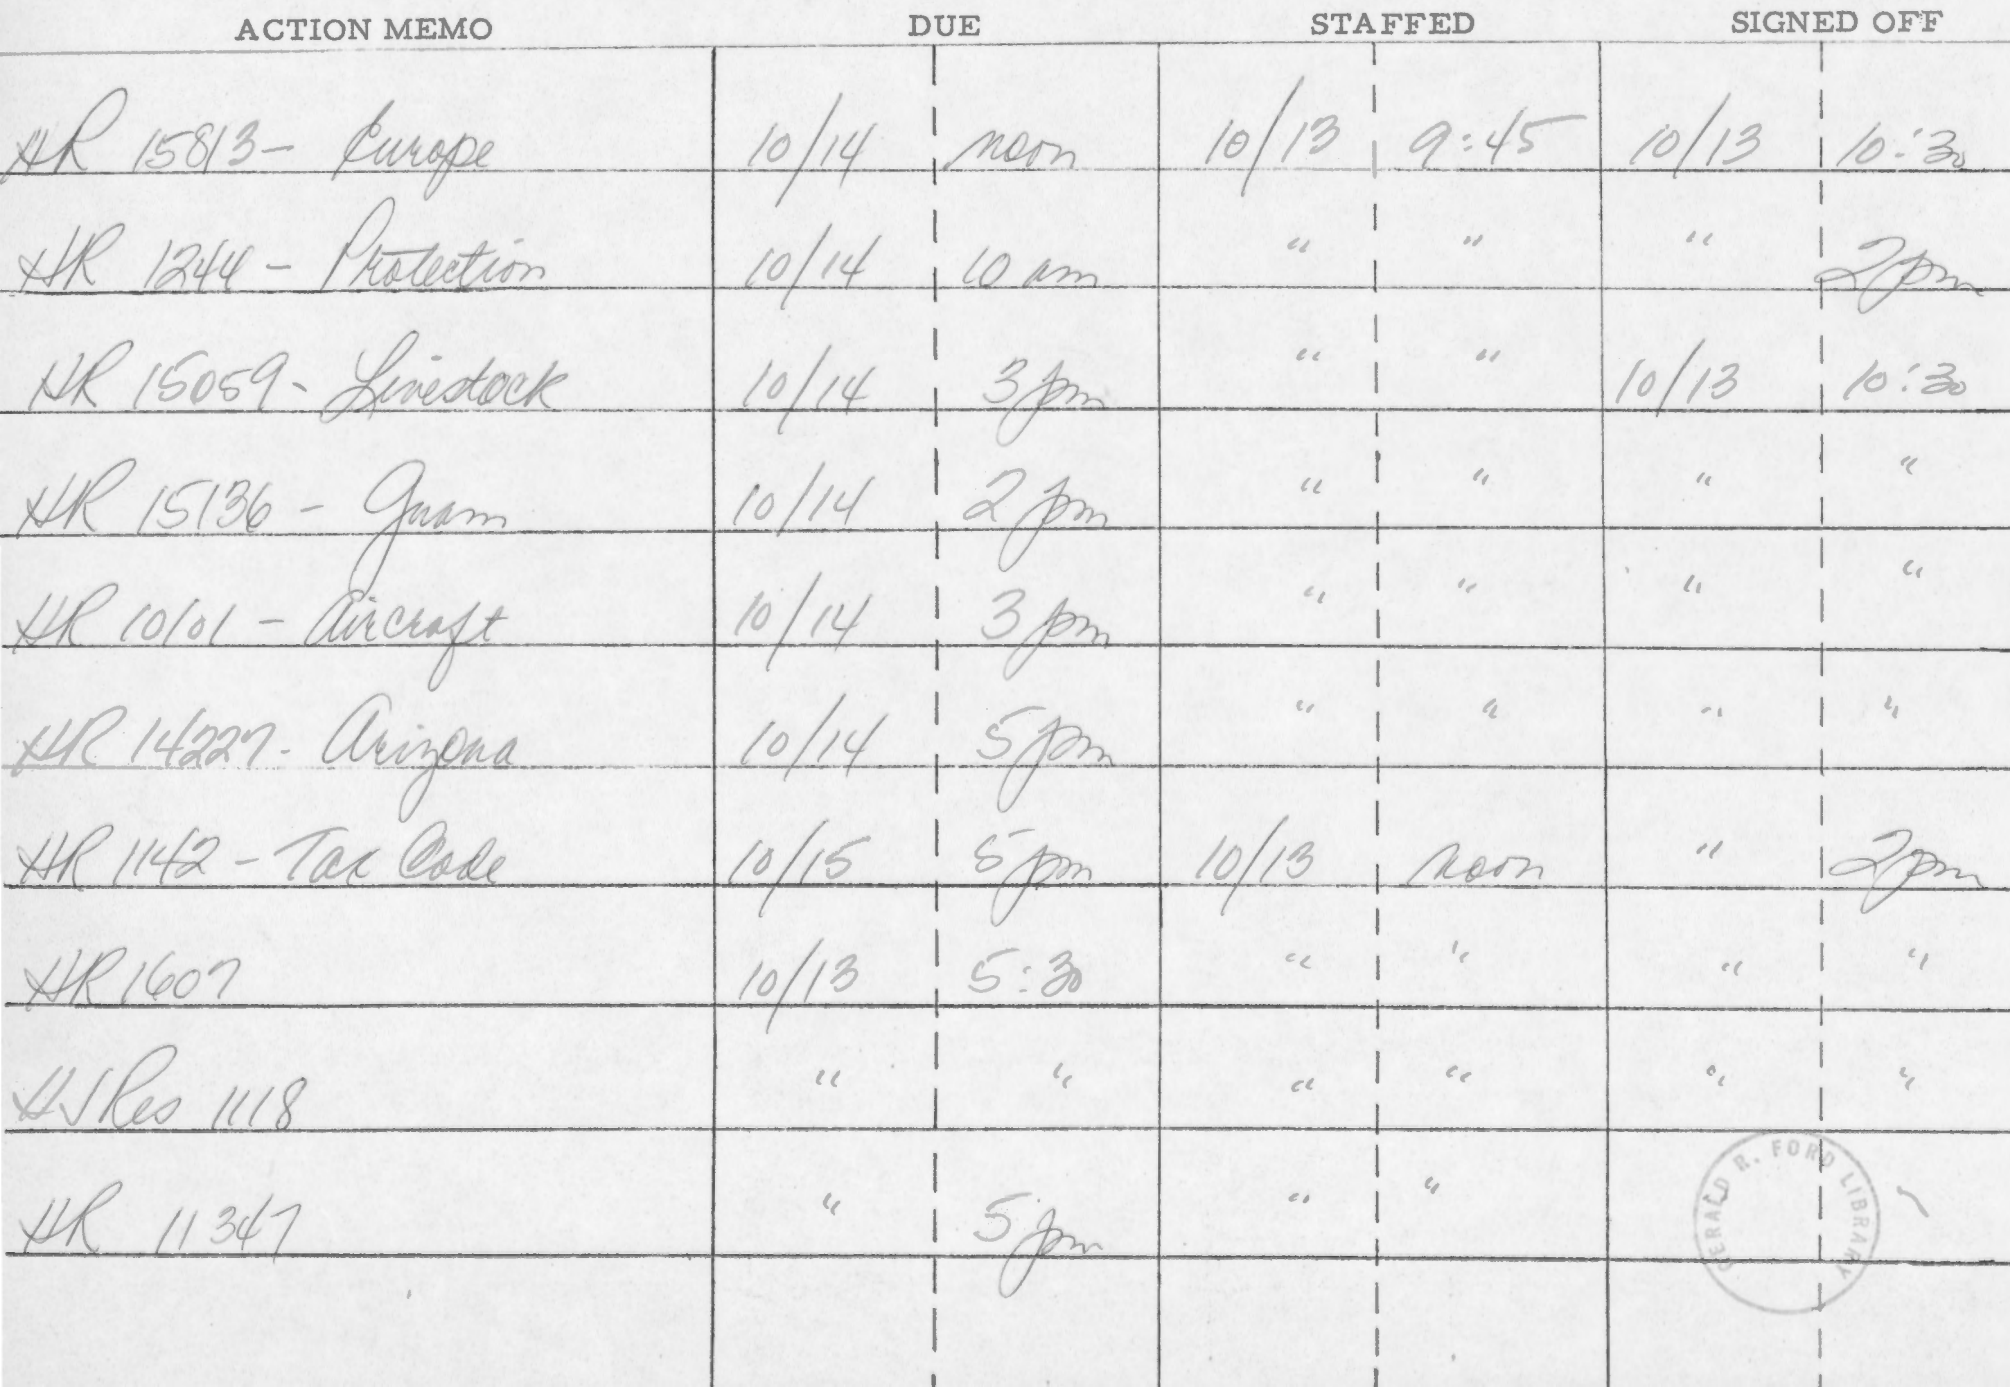 ACTION MEMO DUE STAFFED SIGNED OFF
HR 15813 - Europe 10/14 noon 10/13 9:45 10/13 10:30
HR 1244 - Protection 10/14 10 am " " " 2pm
HR 15059 - Livestock 10/14 3 pm " " 10/13 10:30
HR 15136 - Guam 10/14 2 pm " " " "
HR 10101 - Aircraft 10/14 3 pm " " " "
HR 14227 - Arizona 10/14 5 pm " " " "
HR 1142 - Tax Code 10/15 5 pm 10/13 noon " 2pm
HR 1607 10/13 5:30 " " " "
HJ Res 1118 " " " " " "
HR 11347 " 5 pm " "
GERALD R. FORD LIBRARY